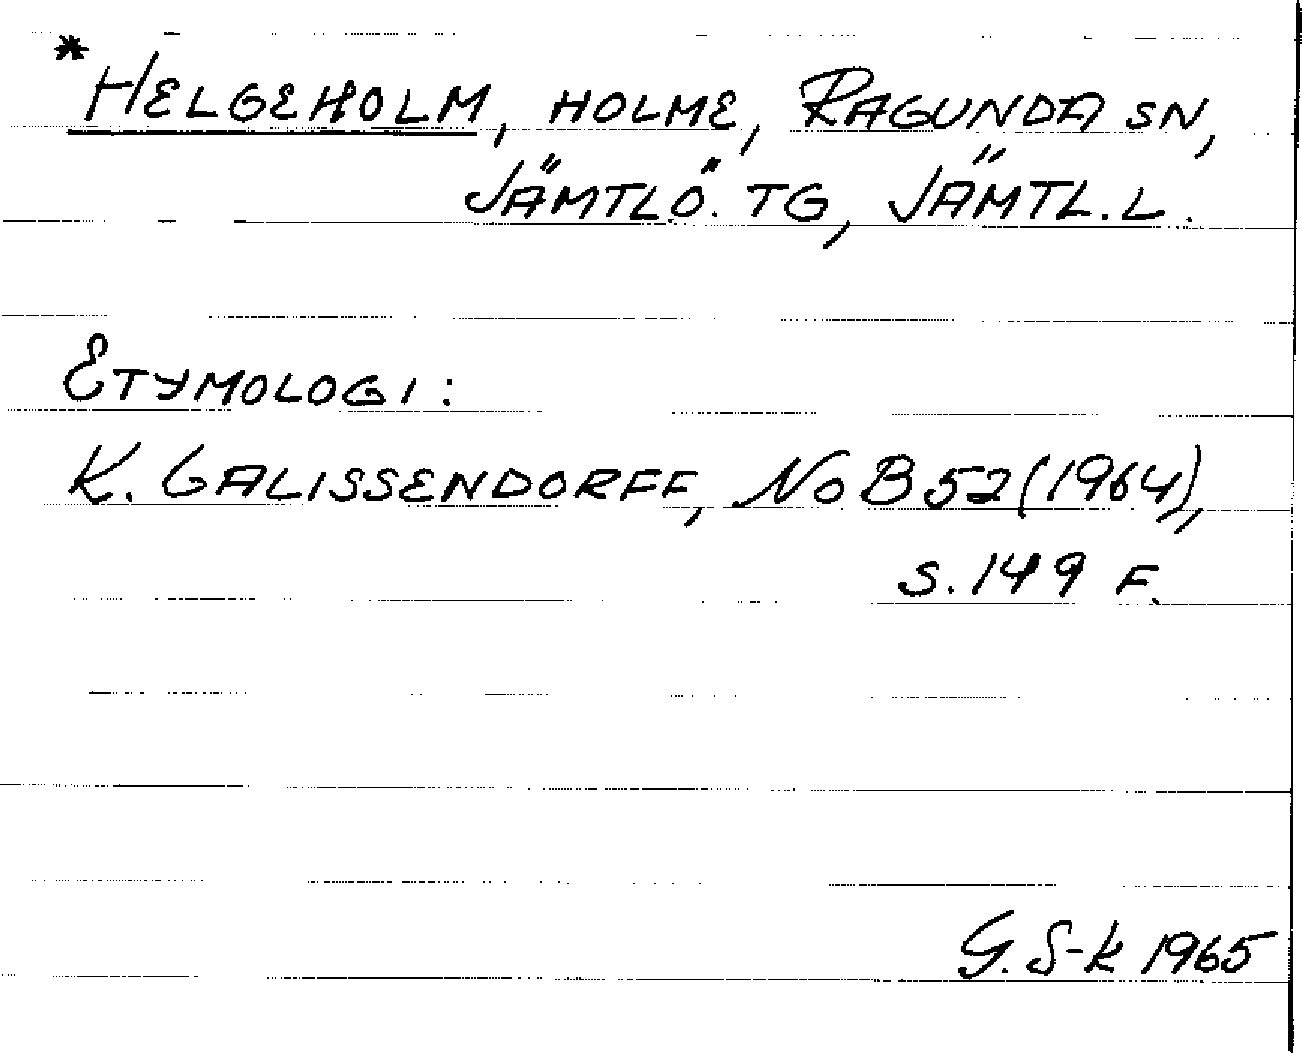 *HELGEHOLM, HOLME, RAGUNDA SN,
JÄMTL.Ö. TG, JÄMTL.L.
ETYMOLOGI:
K. GALISSENDORFF, NoB 52 (1964),
S. 149 F.
G. S-k 1965